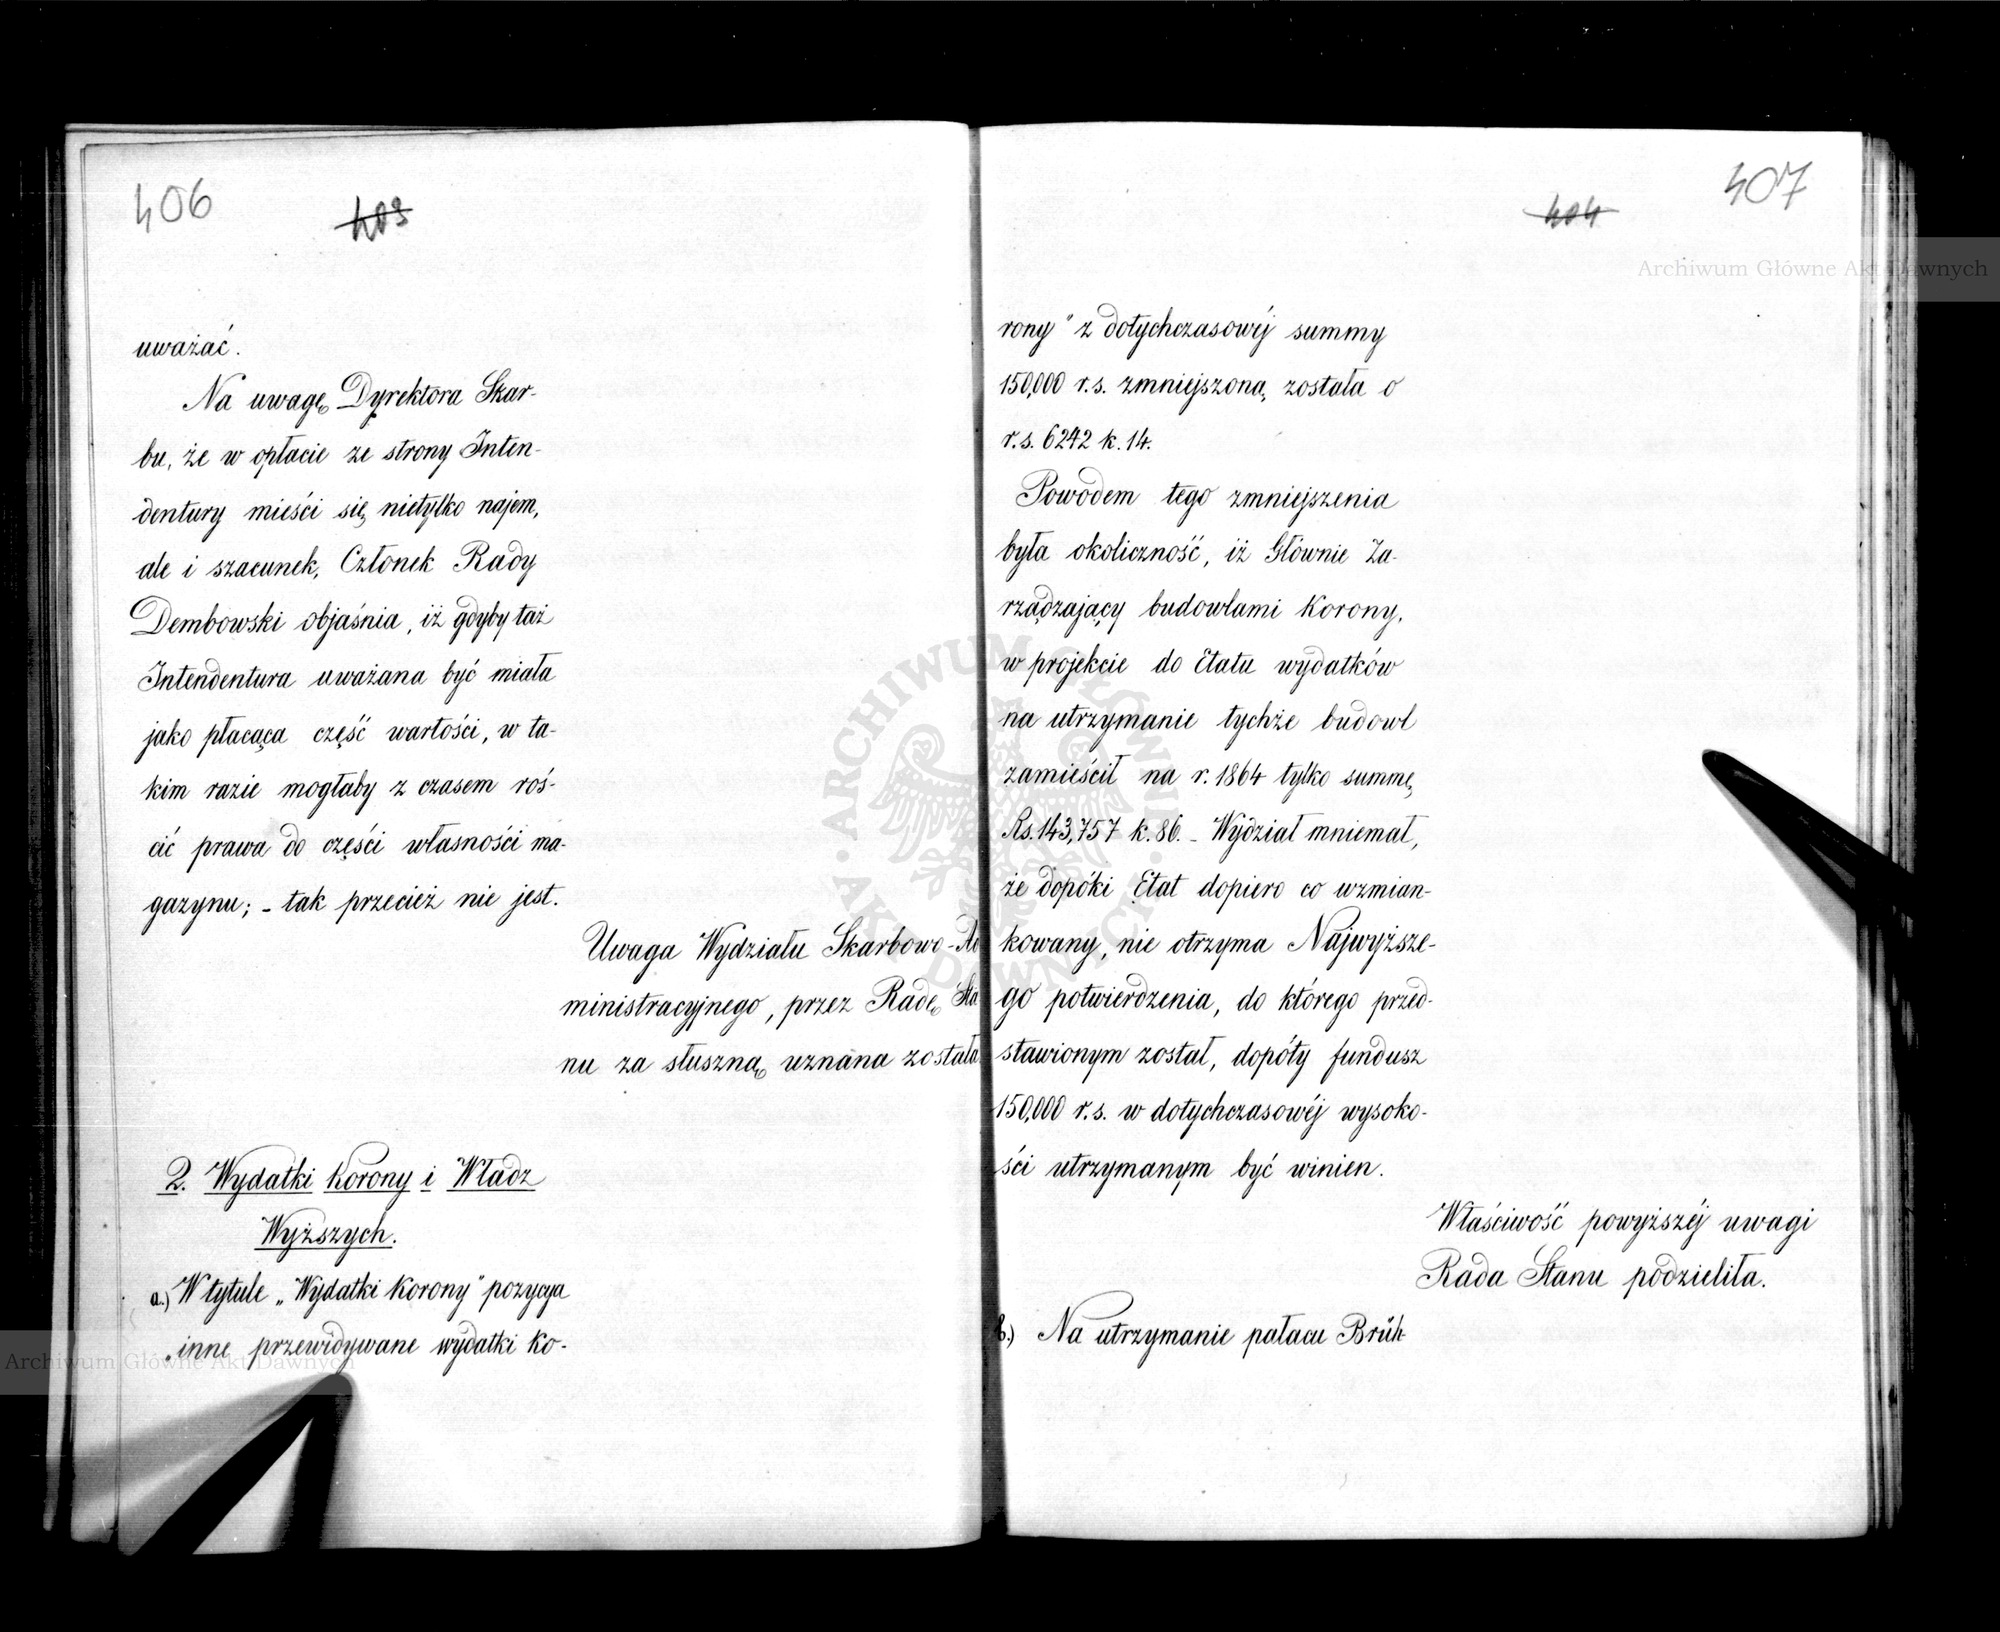 406
403
uważać.
Na uwagę Dyrektora Skar-
bu, że w opłacie ze strony Inten-
dentury mieści się nietylko najem,
ale i szacunek, Członek Rady
Dembowski objaśnia, iż gdyby taż
Intendentura uważana być miała
jako płacąca część wartości, w ta-
kim razie mogłaby z czasem roś-
cić prawa do części własności ma-
gazynu; - tak przecież nie jest.
Uwaga Wydziału Skarbowo-Ad
ministracyjnego, przez Radę Sta
nu za słuszną uznana została
2. Wydatki Korony i Władz
Wyższych.
a.) W tytule „Wydatki Korony" pozycya
„inne przewidywane wydatki Ko-
407
404
rony" z dotychczasowéj summy
150,000 r.s. zmniejszoną została o
r.s. 6242 k. 14.
Powodem tego zmniejszenia
była okoliczność, iż Głównie Za-
rządzający budowlami Korony,
w projekcie do Etatu wydatków
na utrzymanie tychże budowl
zamieścił na r. 1864 tylko summę
Rs. 143,757 k. 86. - Wydział mniemał,
że dopóki Etat dopiero co wzmian-
kowany, nie otrzyma Najwyższe-
go potwierdzenia, do którego przed-
stawionym został, dopóty fundusz
150,000 r.s. w dotychczasowéj wysoko-
ści utrzymanym być winien.
Właściwość powyższéj uwagi
Rada Stanu podzieliła.
b.) Na utrzymanie pałacu Brüh-
Archiwum Główne Akt Dawnych
ARCHIWUM GŁÓWNE AKT DAWNYCH
Archiwum Główne Akt Dawnych